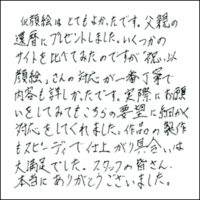 似顔絵はとてもよかったです。父親の
還暦にプレゼントしました。いくつかの
サイトを比べてみたのですが"祝い似
顔絵"さんの対応が一番丁寧で
内容も詳しかったです。実際にお願
いをしてみてもこちらの要望に細かく
対応をしてくれました。作品の製作
もスピーディで仕上がり具合いは
大満足でした。スタッフの皆さん
本当にありがとうございました。